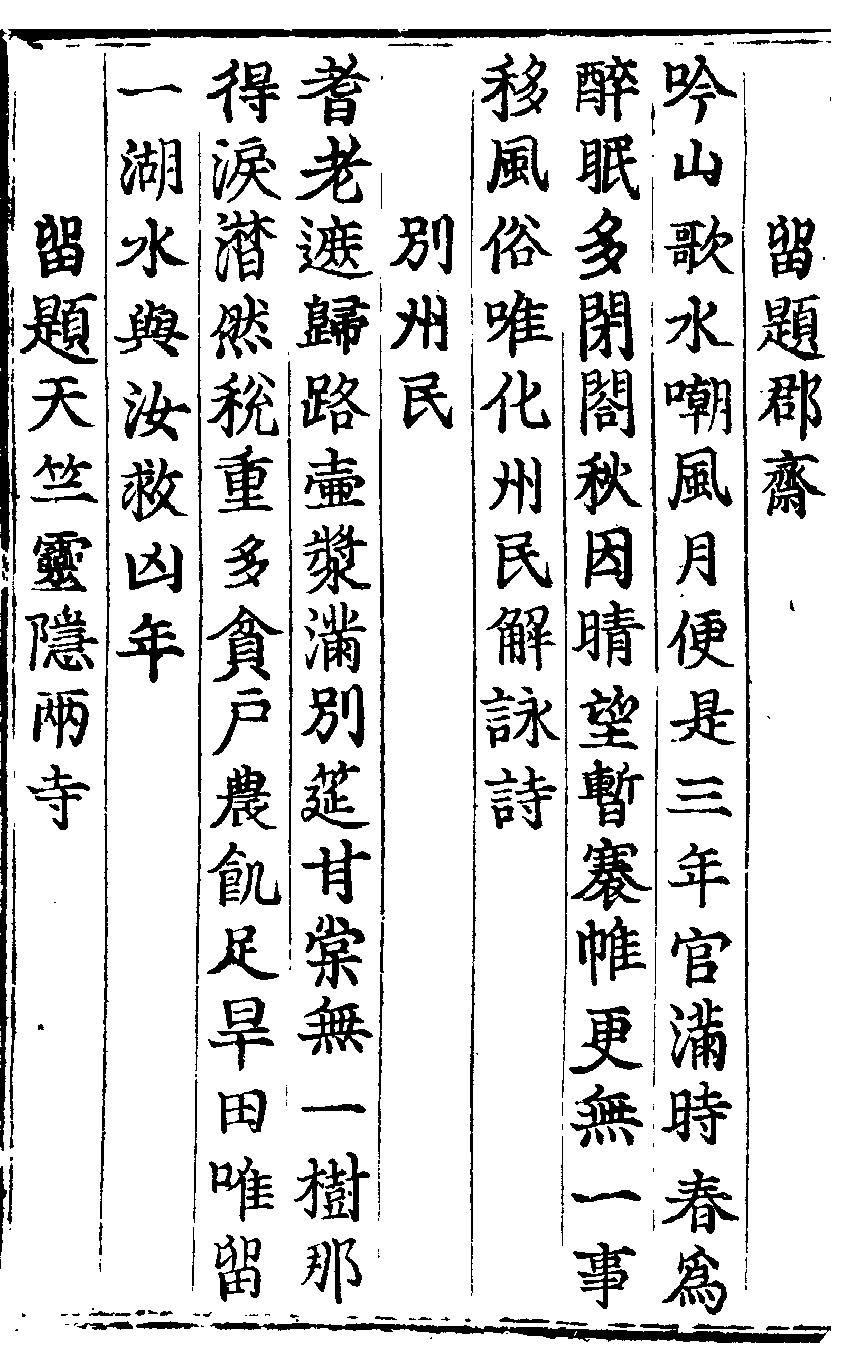 留題郡齋
吟山歌水嘲風月便是三年官滿時春爲
醉眠多閉閤秋因晴望暫褰帷更無一事
移風俗唯化州民解詠詩
別州民
耆老遮歸路壺漿滿別筵甘棠無一樹那
得淚潸然稅重多貧戶農飢足旱田唯留
一湖水與汝救凶年
留題天竺靈隱兩寺